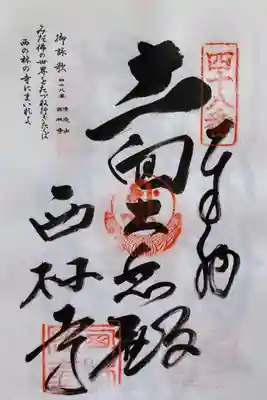 四十八番
奉納
十一面大悲殿
西林寺
御詠歌 四十八番 清滝山 西林寺
みだ佛の世界をたづね行きたくば
西の林の寺にまいれよ